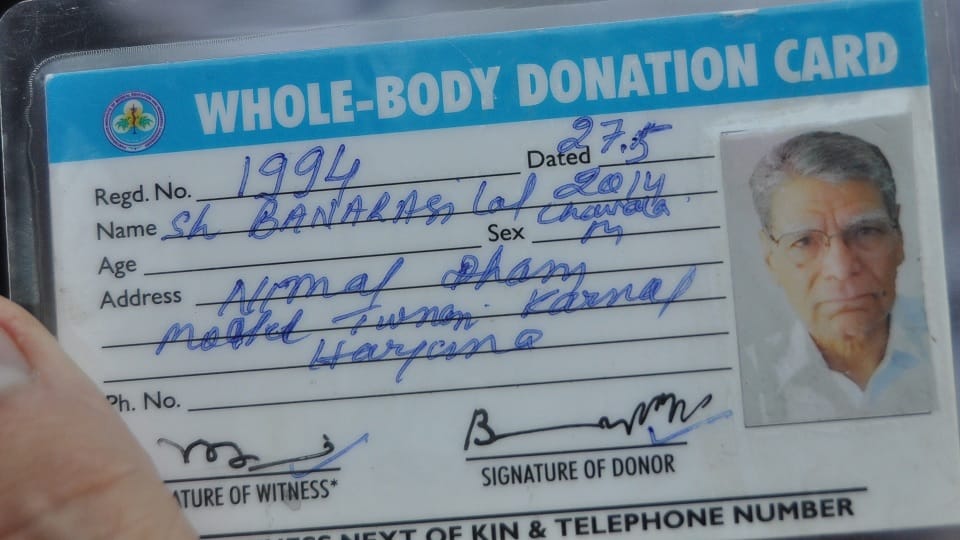 WHOLE-BODY DONATION CARD
Regd. No. 1994 Dated 27.5
2014
Name Sh BANARASI Lal Chawala
Sex M
Age
Address Nirmal Dham
Model Karnal
Haryana
Ph. No.
ATURE OF WITNESS*
SIGNATURE OF DONOR
NEXT OF KIN & TELEPHONE NUMBER